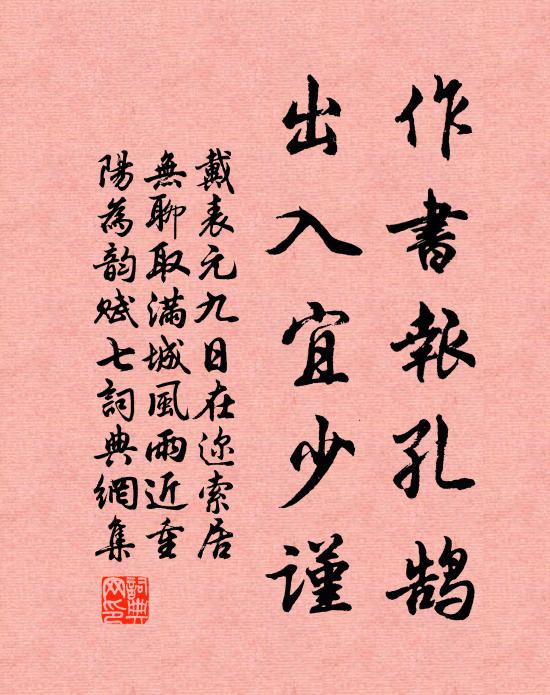 作書報孔鵠
出入宜少謹
戴表元九日在迩索居
無聊取滿城風雨近重
陽為韵賦七詞典網集
詞典網印